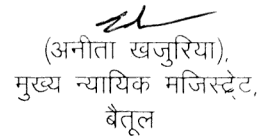 (अनीता खजुरिया),
मुख्य न्यायिक मजिस्ट्रेट,
बैतूल